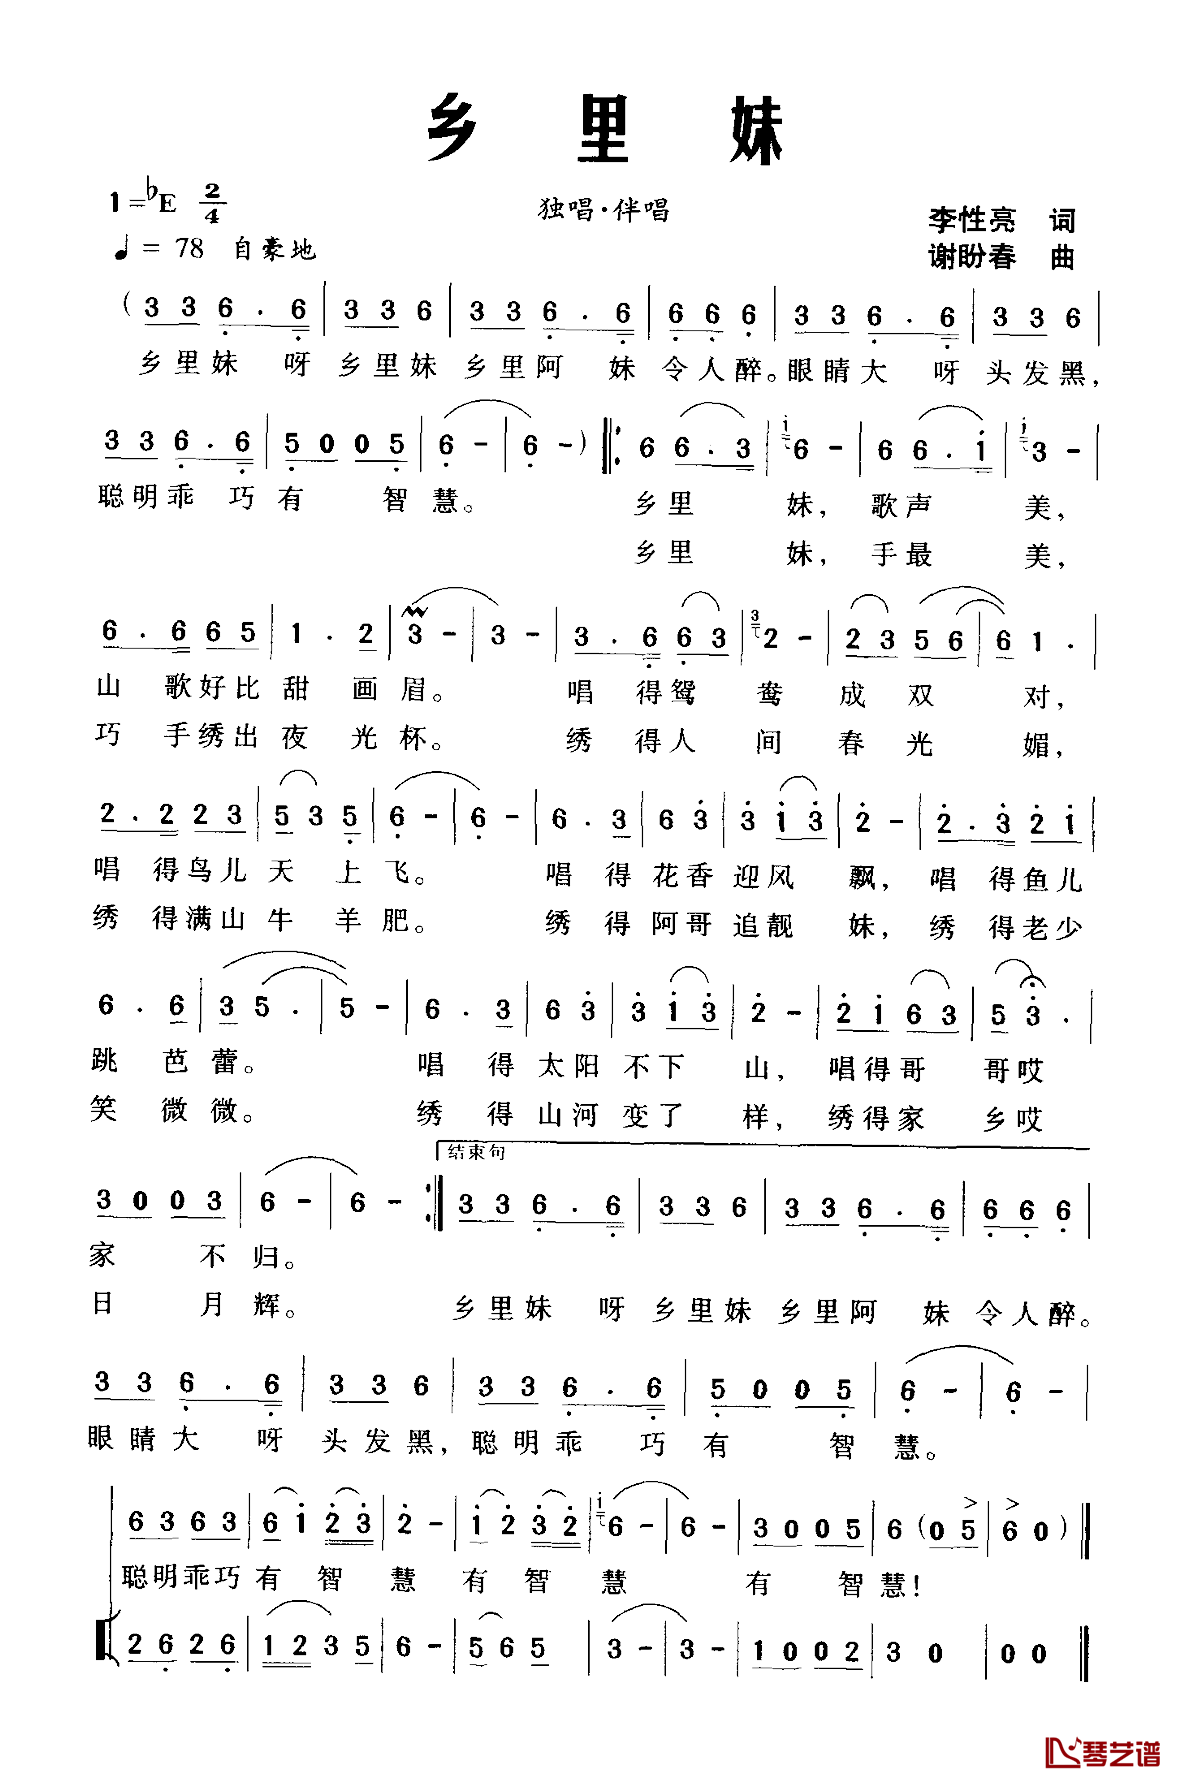 乡 里 妹
1=♭E 2/4
独唱·伴唱
李性亮 词
♩= 78 自豪地
谢盼春 曲
(3 3 6 . 6 | 3 3 6 | 3 3 6 . 6 | 6 6 6 | 3 3 6 . 6 | 3 3 6 |
乡里妹 呀 乡里妹 乡里阿 妹 令人醉。眼睛大 呀 头发黑,
3 3 6 . 6 | 5 0 0 5 | 6 - | 6 - ) ‖: 6 6 . 3 | i 6 - | 6 6 . i | i 3 - |
聪明乖 巧有 智慧。 乡里 妹, 歌声 美,
乡里 妹, 手最 美,
6 . 6 6 5 | 1 . 2 | 3 - | 3 - | 3 . 6 6 3 | 3 2 - | 2 3 5 6 | 6 1 . |
山 歌好比甜 画眉。 唱 得鸳 鸯 成 双 对,
巧 手绣出夜 光杯。 绣 得人 间 春 光 媚,
2 . 2 2 3 | 5 3 5 | 6 - | 6 - | 6 . 3 | 6 3 | 3 i 3 | 2 - | 2 . 3 2 i |
唱 得鸟儿天 上飞。 唱 得花香迎风 飘, 唱 得鱼儿
绣 得满山牛 羊肥。 绣 得阿哥追靓 妹, 绣 得老少
6 . 6 | 3 5 . | 5 - | 6 . 3 | 6 3 | 3 i 3 | 2 - | 2 i 6 3 | 5 3 . |
跳 芭蕾。 唱 得太阳不下 山, 唱得哥 哥哎
笑 微微。 绣 得山河变了 样, 绣得家 乡哎
结束句
3 0 0 3 | 6 - | 6 - :‖ 3 3 6 . 6 | 3 3 6 | 3 3 6 . 6 | 6 6 6 |
家 不归。
日 月辉。 乡里妹 呀 乡里妹 乡里阿 妹 令人醉。
3 3 6 . 6 | 3 3 6 | 3 3 6 . 6 | 5 0 0 5 | 6 - | 6 - |
眼睛大 呀 头发黑,聪明乖 巧有 智慧。
6 3 6 3 | 6 i 2 3 | 2 - | i 2 3 2 | i 6 - | 6 - | 3 0 0 5 | 6 (0 5 | 6 0 ) ‖
聪明乖巧有 智 慧 有 智 慧 有 智慧!
2 6 2 6 | 1 2 3 5 | 6 - | 5 6 5 | 3 - | 3 - | 1 0 0 2 | 3 0 | 0 0 ‖
琴艺谱